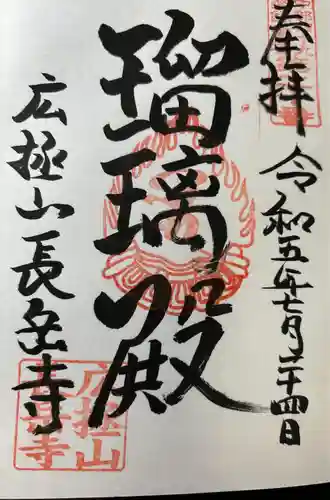 奉拝
令和五年七月二十四日
瑠璃殿
広極山長岳寺
広拯山
長岳寺